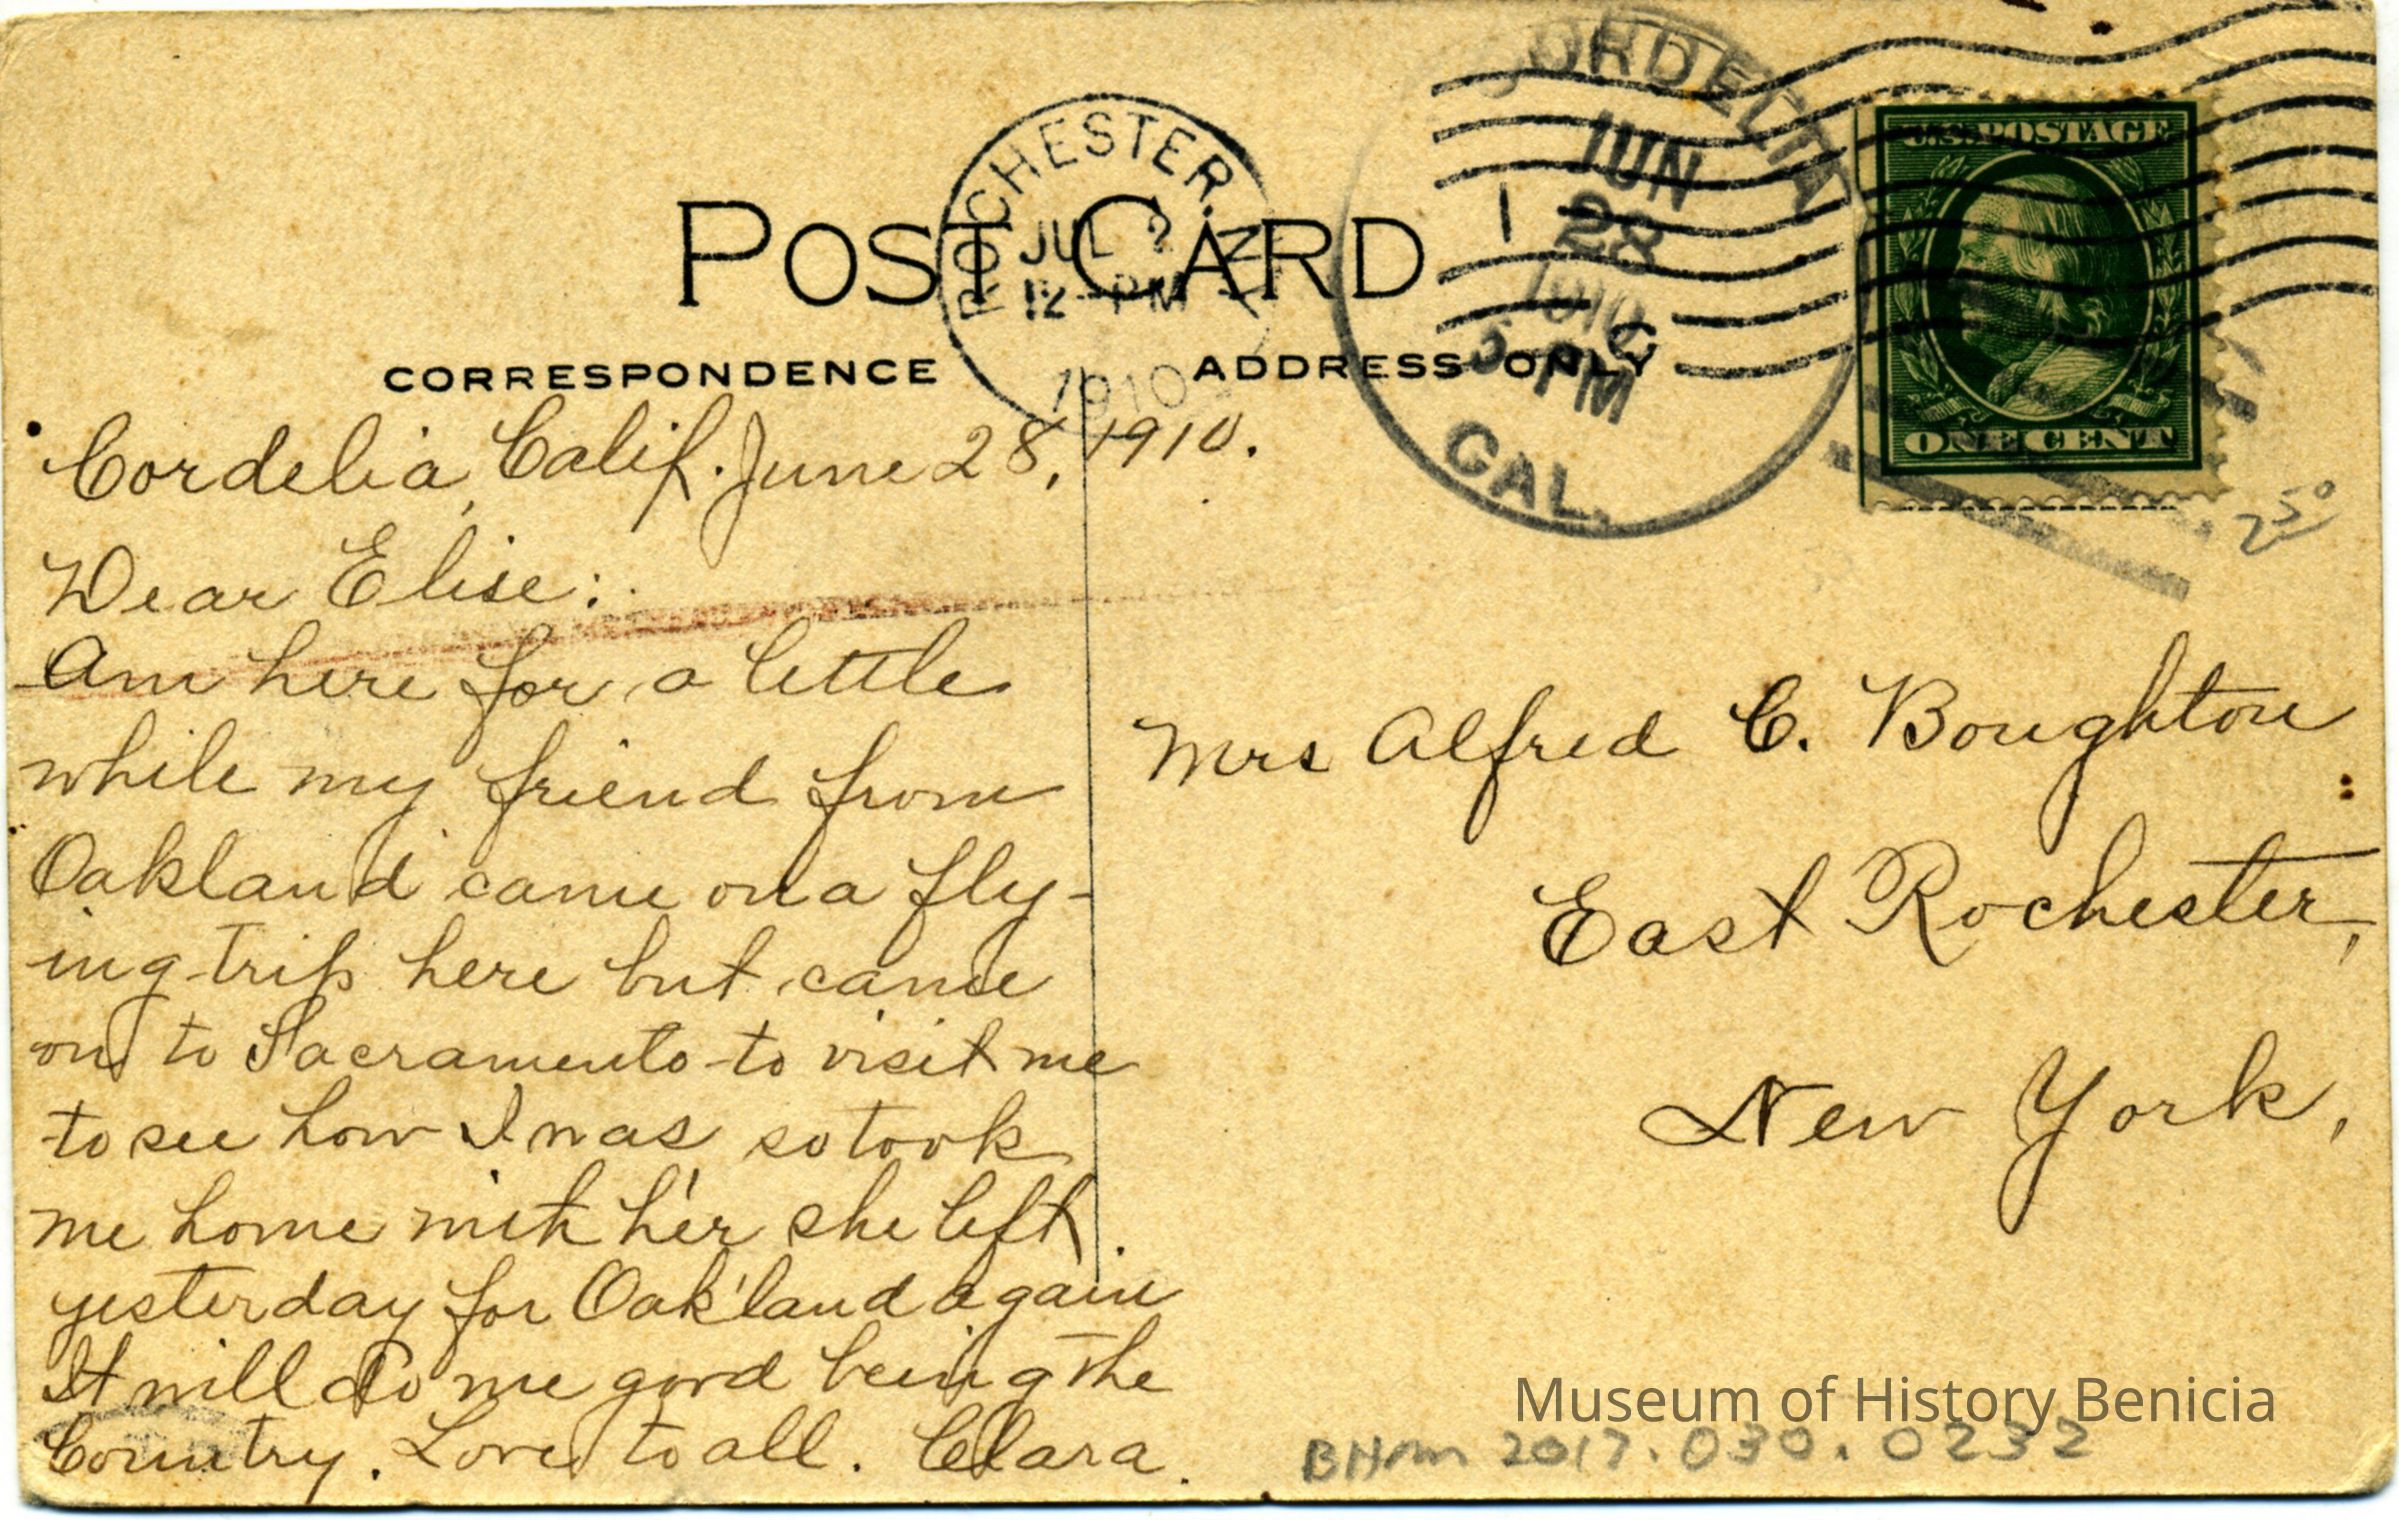 POST CARD
CORRESPONDENCE
ADDRESS ONLY
ROCHESTER, N.Y.
JUL
12-PM
1910
CORDELIA
JUN
28
1910
5 PM
CAL.
U.S. POSTAGE
ONE CENT
2 50
Cordelia, Calif. June 28, 1910.
Dear Elise:
Am here for a little
while my friend from
Oakland came on a fly-
ing trip here but came
on to Sacramento to visit me
to see how I was so took
me home with her she left
yesterday for Oakland again
It will do me good being the
Country. Love to all. Clara.
Mrs Alfred C. Boughton
East Rochester,
New York,
Museum of History Benicia
BHm 2017.030.0232